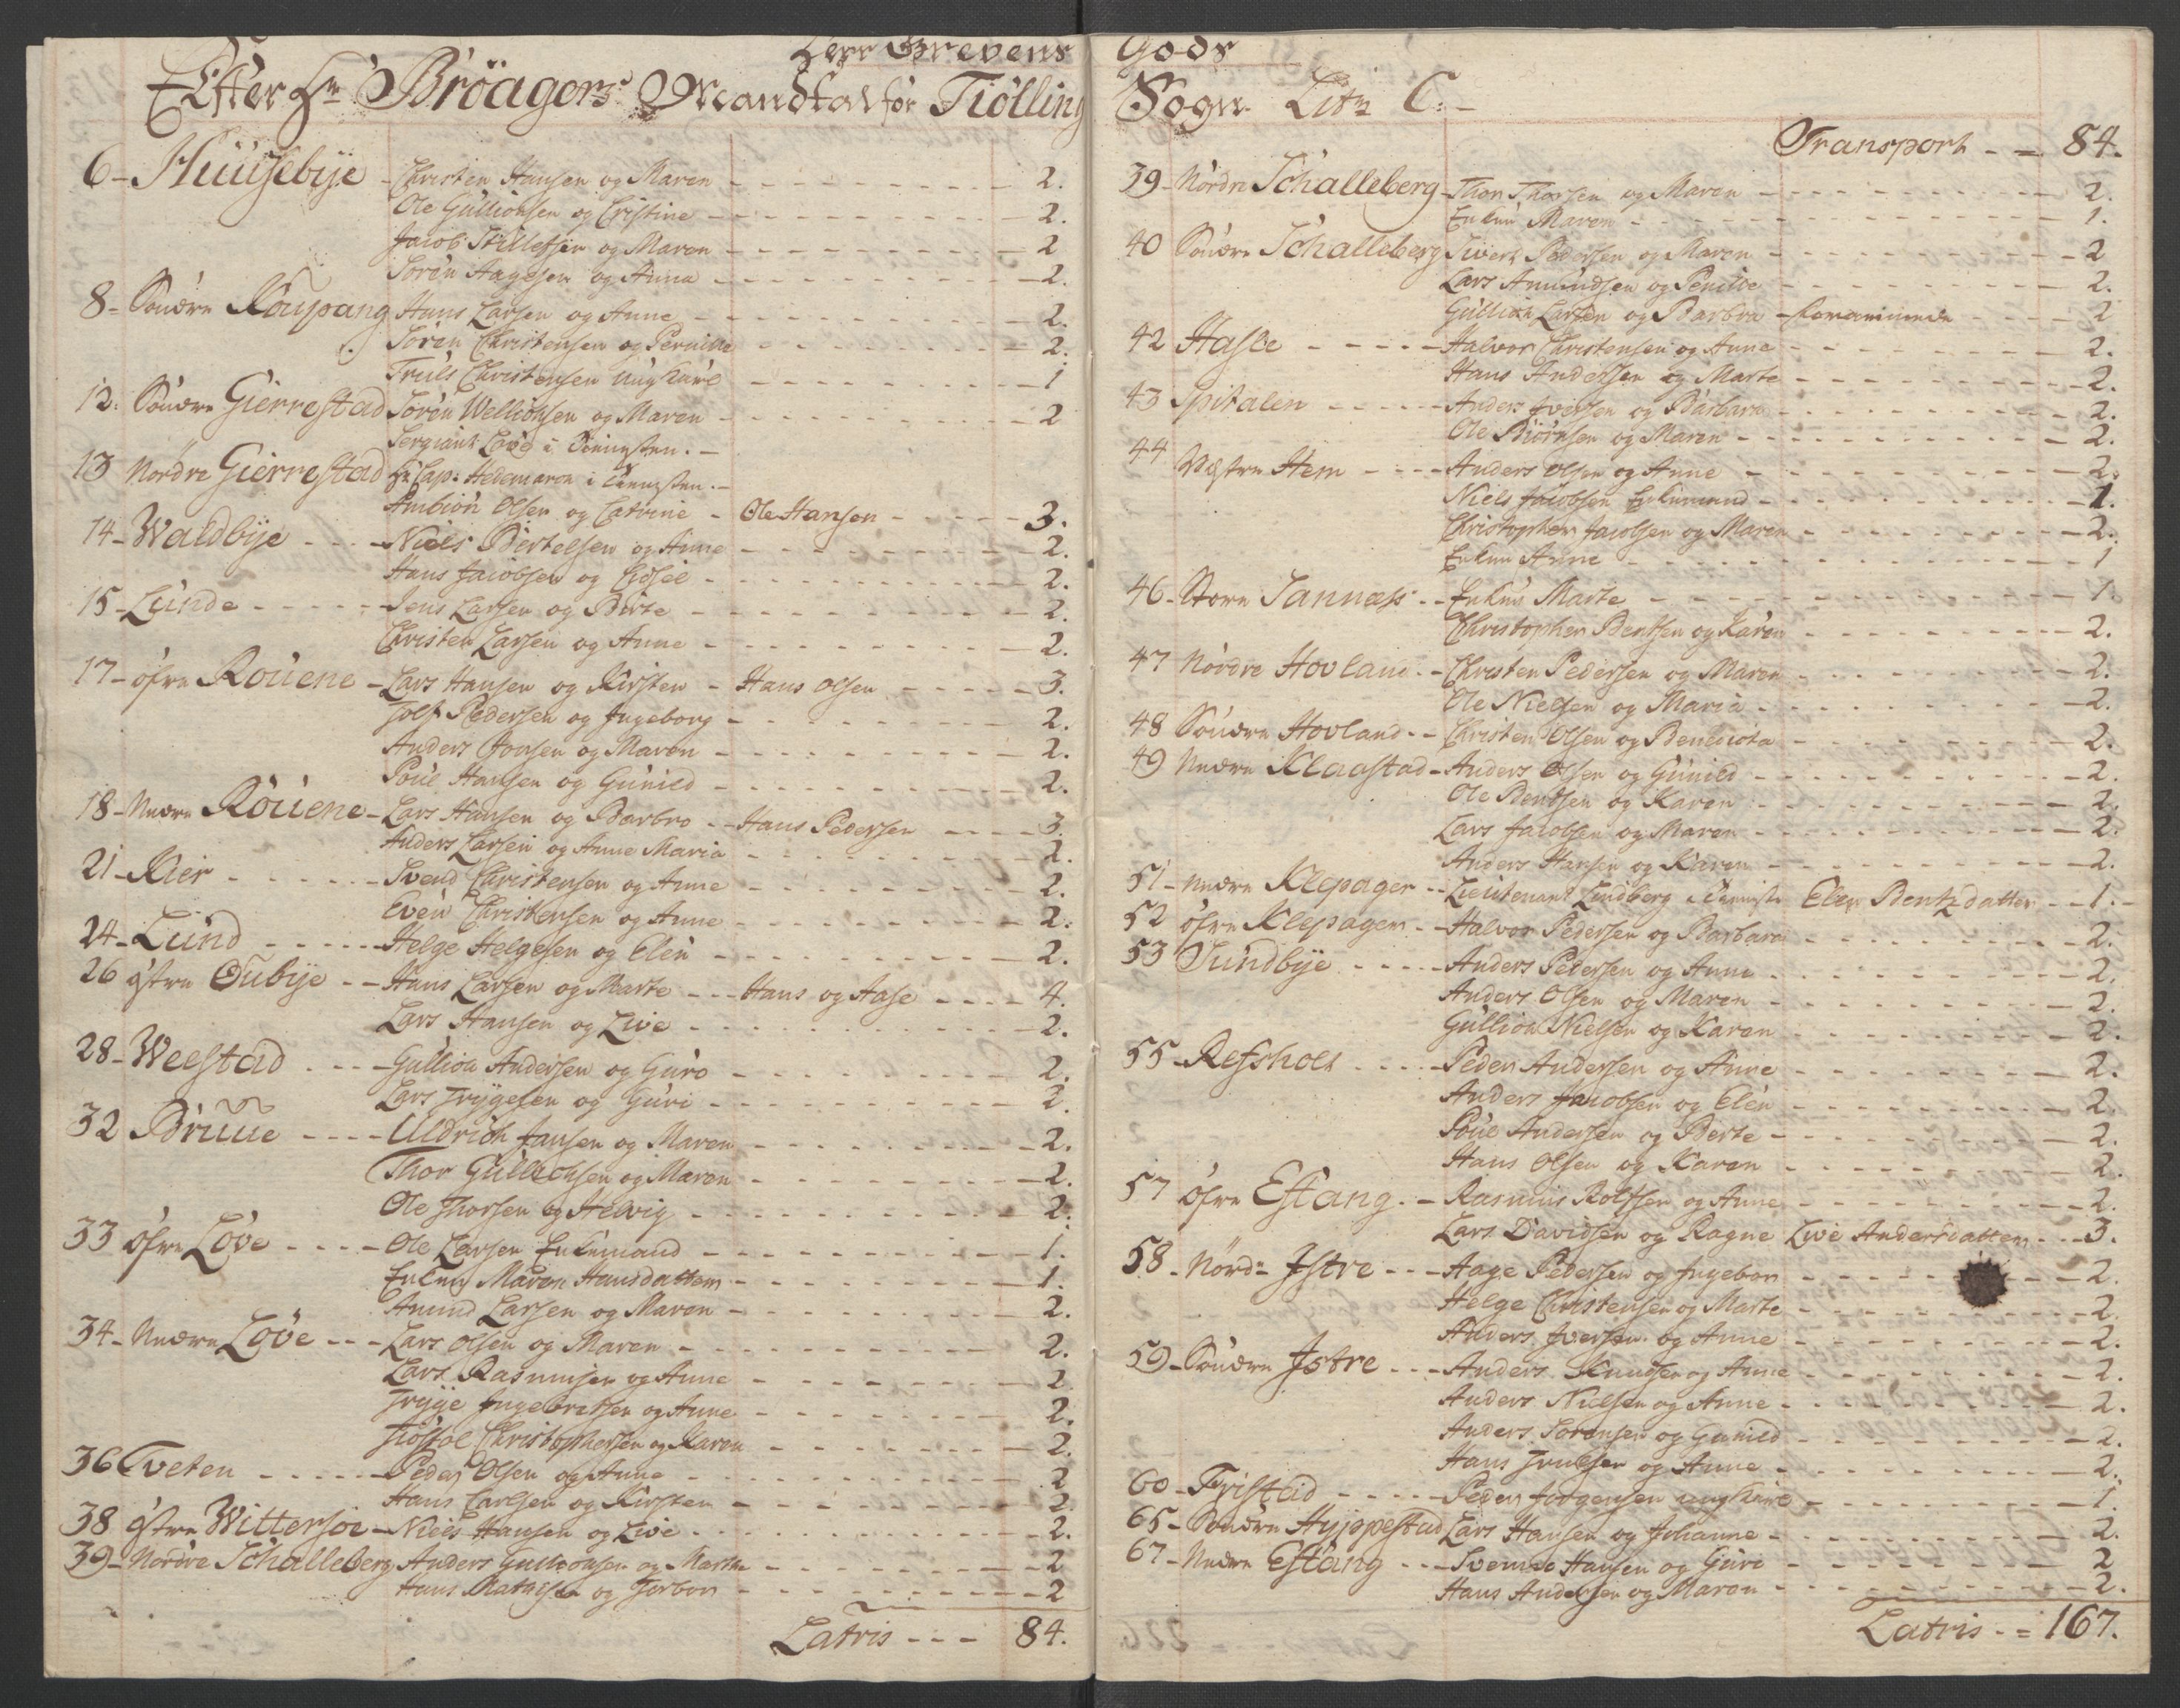 Herr Grevens Gods
Efter Hr Bröagers Mandtal for Tiölling Sogn Litr C:
6 - Huusebye - Christen Hansen og Maren - 2.
Ole Gullionsen og Cristine - 2.
Jacob Stillefsen og Maren - 2
Soren Aagesen og Anna - 2.
8 - Söndre Kaupang Hans Larsen og Anne - 2.
Soren Christensen og Pernille - 2.
Truls Christensen ungkarl - 1
12: Söndre Gierrestad Soren Wellionsen og Maren - 2
Sergiant Love i Tienesten. -
13 Nordre Gierrestad Hr Cap: Hedemarck i Tienesten. -
Ambion Olsen og Catrine - Ole Hansen - 3.
14 - Waldbye - Niels Bertelsen og Anne - 2.
Hans Jacobsen og Cidsel - 2.
15 - Lunde - Jens Larsen og Birte - 2.
Christen Larsen og Anne - 2.
17 - öfre Rouene - Lars Hansen og Kirsten - Hans Olsen - 3.
Rolf Pedersen og Ingeborg - 2.
Anders Jonsen og Maren - 2.
Poul Hansen og Gunild - 2.
18 - Nedre Röuene - Lars Hansen og Barbro - Hans Pedersen - 3.
Anders Larsen og Anne Maria - 2.
21 - Kier - Svend Christensen og Anne - 2.
Even Christensen og Anne - 2.
24 - Lund - Helge Helgesen og Elen - 2.
26 östre Oubye - Hans Larsen og Marte - Hans og Aase - 4.
Lars Hansen og Live - 2.
28 - Weestad - Gullion Andersen og Guro - 2.
Lars Trygesen og Guri - 2.
32 Bruue - Uldrich Jansen og Maren - 2.
Thor Gullechsen og Maren - 2.
Ole Thorsen og Helvig - 2.
33 öfre Löve - Ole Larsen Enkemand - 1.
Enken Maren Hansdatter - 1.
Amund Larsen og Maren - 2.
34 - Nedre Löve - Lars Olsen og Maren - 2.
Lars Rasmusen og Anne - 2
Tryge Ingebretsen og Anne - 2.
Tiostol Christophersen og Karen - 2.
36 Tveten - Peder Olsen og Anne - 2
Hans Carlsen og Kirsten - 2.
38 östre Wittersöe - Niels Hansen og Live - 2.
39 - Nordre Schalleberg Anders Gullionsen og Marthe - 2
Hans Mathisen og Torbor - 2
Latris - 84.
Transport - 84.
39 - Nordre Schalleberg - Thor Thorsen og Maren - 2.
Enken Maren - 1.
40 Söndre Schalleberg Sivert Pedersen og Maren - 2
Lars Amundsen og Pernille - 2.
Gullich Larsen og Barbra - 2
42 Hasle - Halvor Christensen og Anne - 2.
Hans Andersen og Marte - 2.
43 Spitalen - Anders Iversen og Barbara - 2.
Ole Biörnsen og Maren - 2.
44 Westre Hem - Anders Olsen og Anne - 2.
Niels Jacobsen Enkemand - 1.
Christopher Jacobsen og Maren - 2.
Enken Anne - 1
46 - Store Sannæss - Enken Marte - 1.
Christopher Bentsen og Karen - 2.
47 Nordre Hovland - Christen Pedersen og Maren - 2.
Ole Nielsen og Maria - 2.
48 Söndre Hovland - Christen Olsen og Benedicta - 2.
49 Nedre Klaastad - Anders Olsen og Gunild - 2.
Ole Bentsen og Karen - 2.
Lars Jacobsen og Maren - 2.
Anders Hansen og Karen - 2.
51 - Nedre Klepager - Lieutenant Lindberg i Tieniste Elen Bentzdatter - 1.
52 öfre Klepager - Halvor Pedersen og Barbara - 2.
53 Sundbye - Anders Pedersen og Anne - 2.
Anders Olsen og Maren - 2.
Gullion Nielsen og Karen - 2.
55 - Refsholt - Peder Andersen og Anne - 2.
Anders Jacobsen og Elen - 2.
Poul Andersen og Berte - 2.
Hans Olsen og Karen - 2.
57 öfre Estang - Rasmus Rolfsen og Anne - 2.
Lars Davidsen og Ragne Live Andersdatter - 3.
58 - Nörd: Istre - Aage Pedersen og Ingebor - 2.
Helge Christensen og Marte - 2.
Anders Iversen og Anne - 2.
59 - Söndre Istre - Anders Knudsen og Anne - 2.
Anders Nielsen og Anne - 2.
Anders Sorensen og Gunild - 2.
Hans Trulsen og Anne - 2.
60 - Fristad - Peder Jorgensen ungkarl - 1.
65 - Söndre Hyppestad Lars Hansen og Johanne - 2.
67 - Nedre Estang - Svenne Hansen og Guri - 2
Hans Andersen og Maren - 2.
Latris - 167.